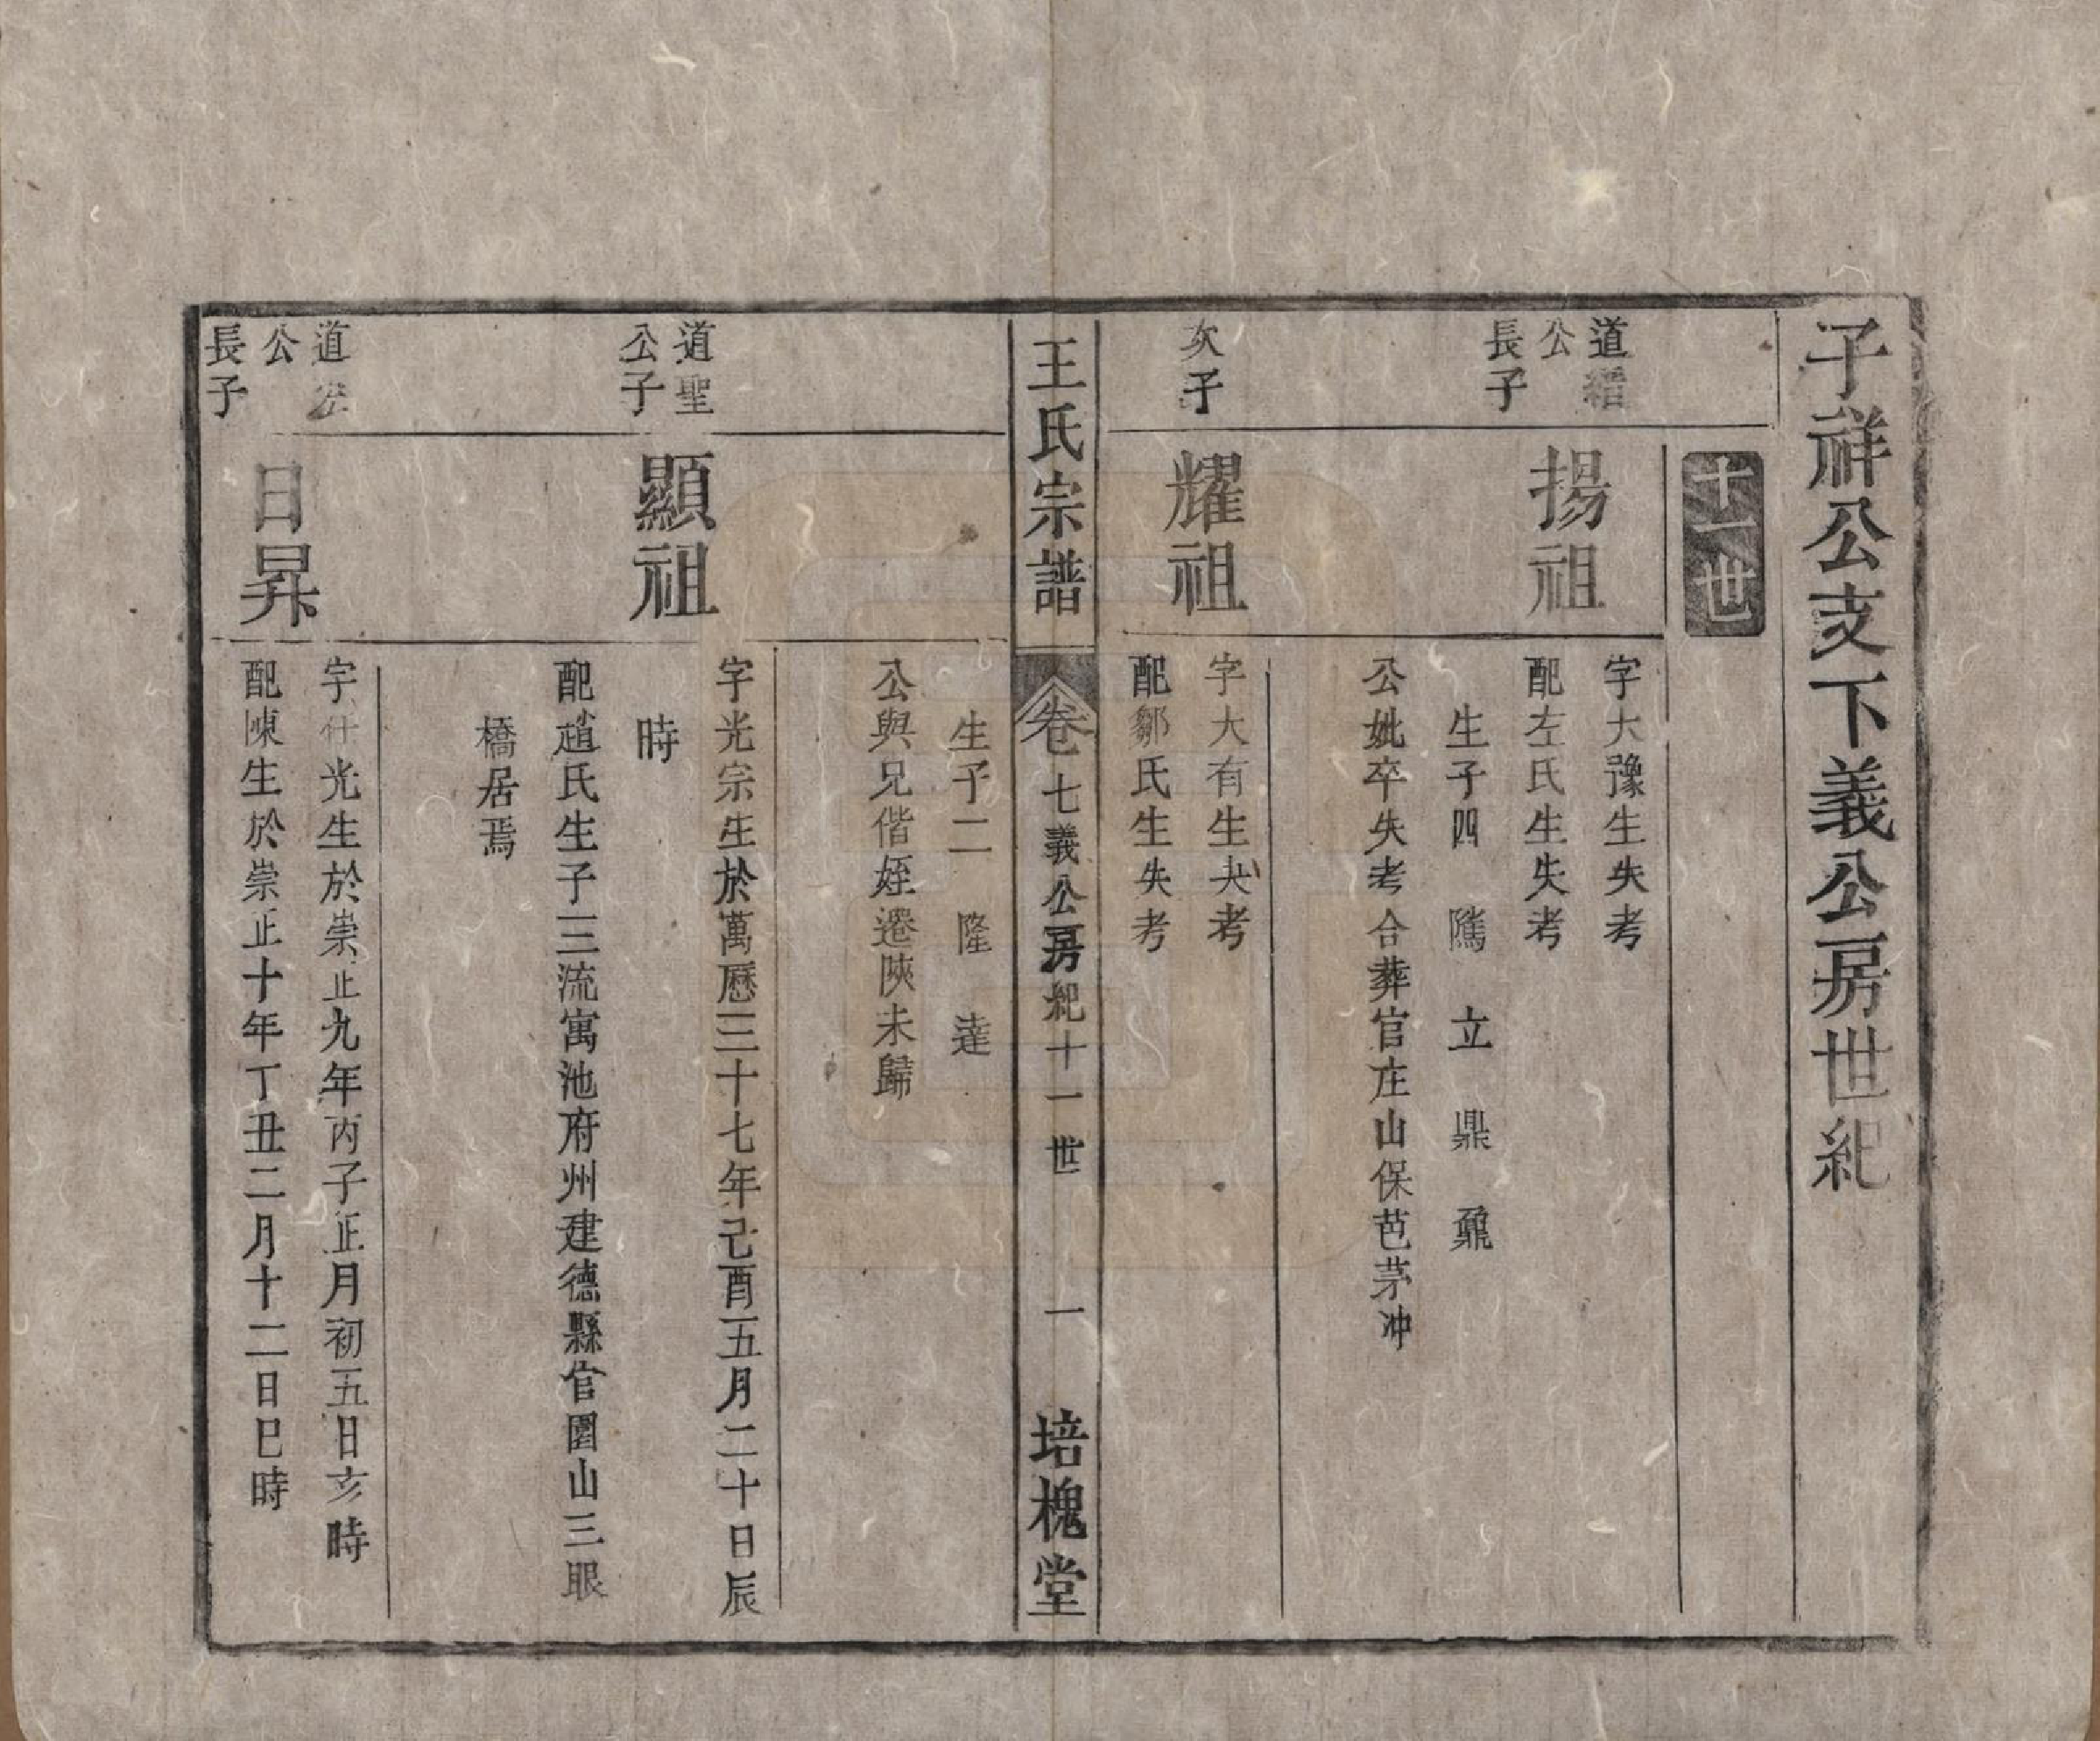 子祥公支下義公房世紀
十一世
道縉
公
長子
揚祖
字大豫生失考
配左氏生失考
生子四 隲 立 鼎 鼐
公妣卒失考合葬官庄山保芭茅冲
次子
耀祖
字大有生失考
配鄒氏生失考
王氏宗譜
卷七義公房紀十一世 一 培槐堂
生子二 隆 達
公與兄偕姪遷陝未歸
道聖
公子
顯祖
字光宗生於萬曆三十七年己酉五月二十日辰
時
配趙氏生子三流寓池府州建德縣官園山三眼
橋居焉
道
公
長子
日昇
字仕光生於崇正九年丙子正月初五日亥時
配陳生於崇正十年丁丑二月十二日巳時